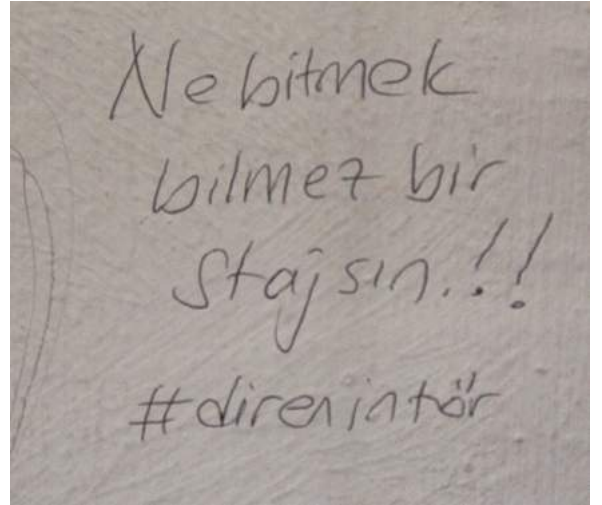 Ne bitmek
bilmez bir
stajsın.!!
#direnintör